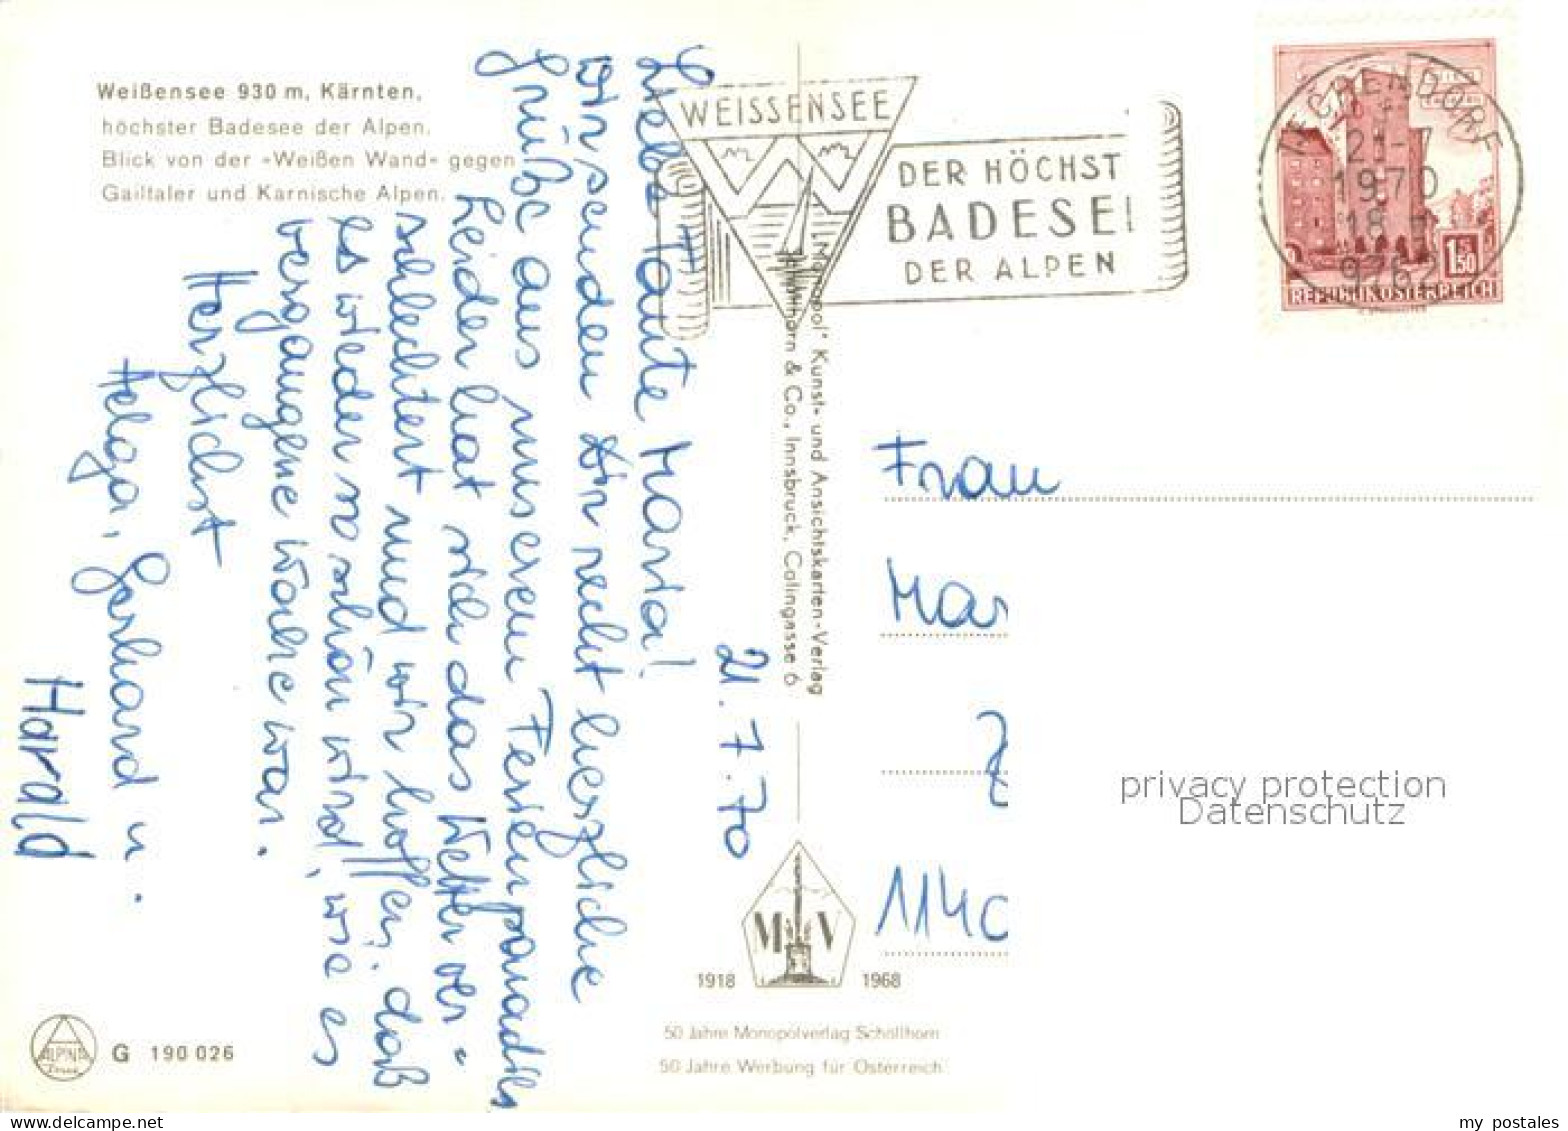 Weißensee 930 m, Kärnten,
höchster Badesee der Alpen.
Blick von der »Weißen Wand« gegen
Gailtaler und Karnische Alpen.
21. 7. 70
Liebe Tante Maria!
Wir senden Dir recht herzliche
Grüße aus unserem Ferienparadies
Leider hat sich das Wetter ver-
schlechtert und wir hoffen, daß
es wieder so schön wird, wie es
vergangene Woche war.
Herzlichst
Helga, Gerhard u.
Harald
WEISSENSEE
DER HÖCHST
BADESE
DER ALPEN
"Monopol" Kunst- und Ansichtskarten-Verlag
Schöllhorn & Co., Innsbruck, Colingasse 6
21.-7
1970
18
9762
1 S 50
REPUBLIK ÖSTERREICH
Frau
Mar
1140
privacy protection
Datenschutz
M V
1918 1968
50 Jahre Monopolverlag Schöllhorn
50 Jahre Werbung für Österreich
ALPINA
G 190 026
www.delcampe.net
my_postales